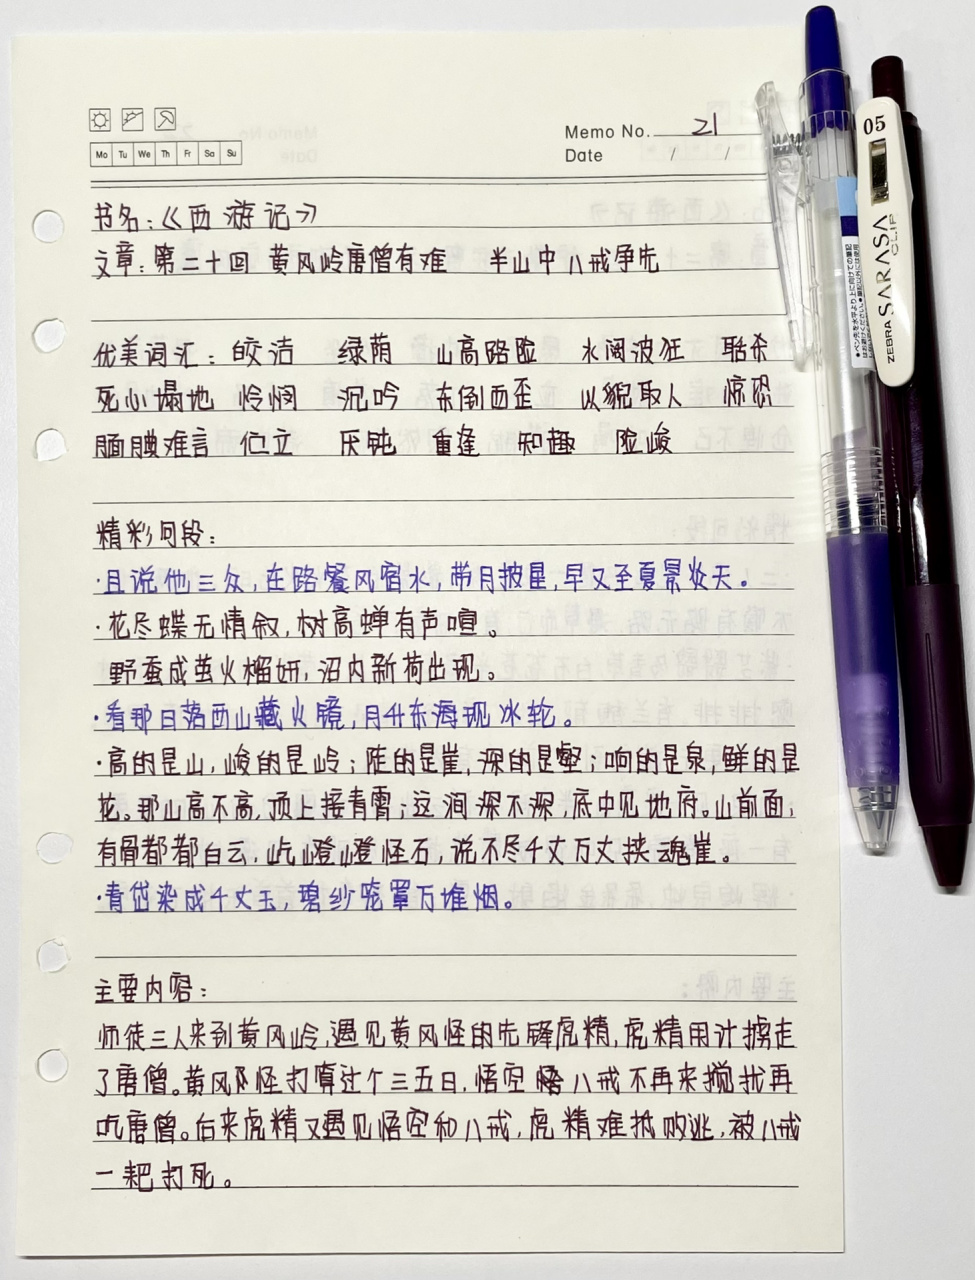 Memo No. 21
Mo Tu We Th Fr Sa Su
Date / /
书名:《西游记》
文章:第二十回 黄风岭唐僧有难 半山中八戒争先
优美词汇: 皎洁 绿荫 山高路险 水阔波狂 聒杀
死心塌地 怜悯 沉吟 东倒西歪 以貌取人 惊恐
腼腆难言 伫立 厌钝 重逢 知趣 险峻
精彩句段:
·且说他三众,在路餐风宿水,带月披星,早又至夏景炎天。
·花尽蝶无情叙,树高蝉有声喧。
野蚕成茧火榴妍,沼内新荷出现。
·看那日落西山藏火镜,月升东海现冰轮。
·高的是山,峻的是岭;陡的是崖,深的是壑;响的是泉,鲜的是
花。那山高不高,顶上接青霄;这涧深不深,底中见地府。山前面,
有骨都都白云,屹嶝嶝怪石,说不尽千丈万丈挟魂崖。
·青岱染成千丈玉,碧纱笼罩万堆烟。
主要内容:
师徒三人来到黄风岭,遇见黄风怪的先锋虎精,虎精用计掳走
了唐僧。黄风怪打算过个三五日,悟空 八戒不再来搅扰再
吃唐僧。后来虎精又遇见悟空和八戒,虎精难抵败逃,被八戒
一耙打死。
05
SARASA
CLIP
ZEBRA